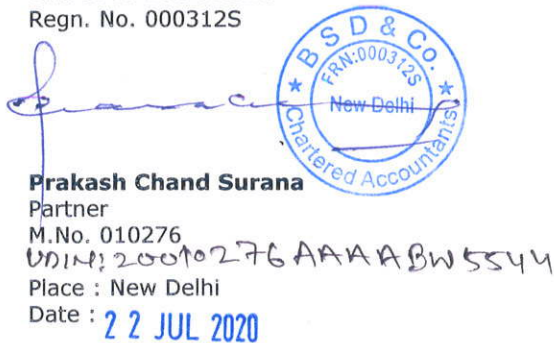 Regn. No. 000312S
B S D & Co.
FRN:000312S
New Delhi
Chartered Accountants
Prakash Chand Surana
Partner
M.No. 010276
UDIN: 20010276AAAABW5544
Place : New Delhi
Date : 22 JUL 2020